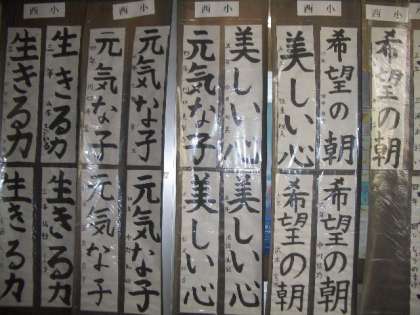 西小
西小
西小
西小
西小
希望の朝
希望の朝
美しい心
美しい心
元気な子
元気な子
元気な子
生きる力
生きる力
希望の朝
希望の朝
美しい心
美しい心
元気な子
元気な子
生きる力
生きる力